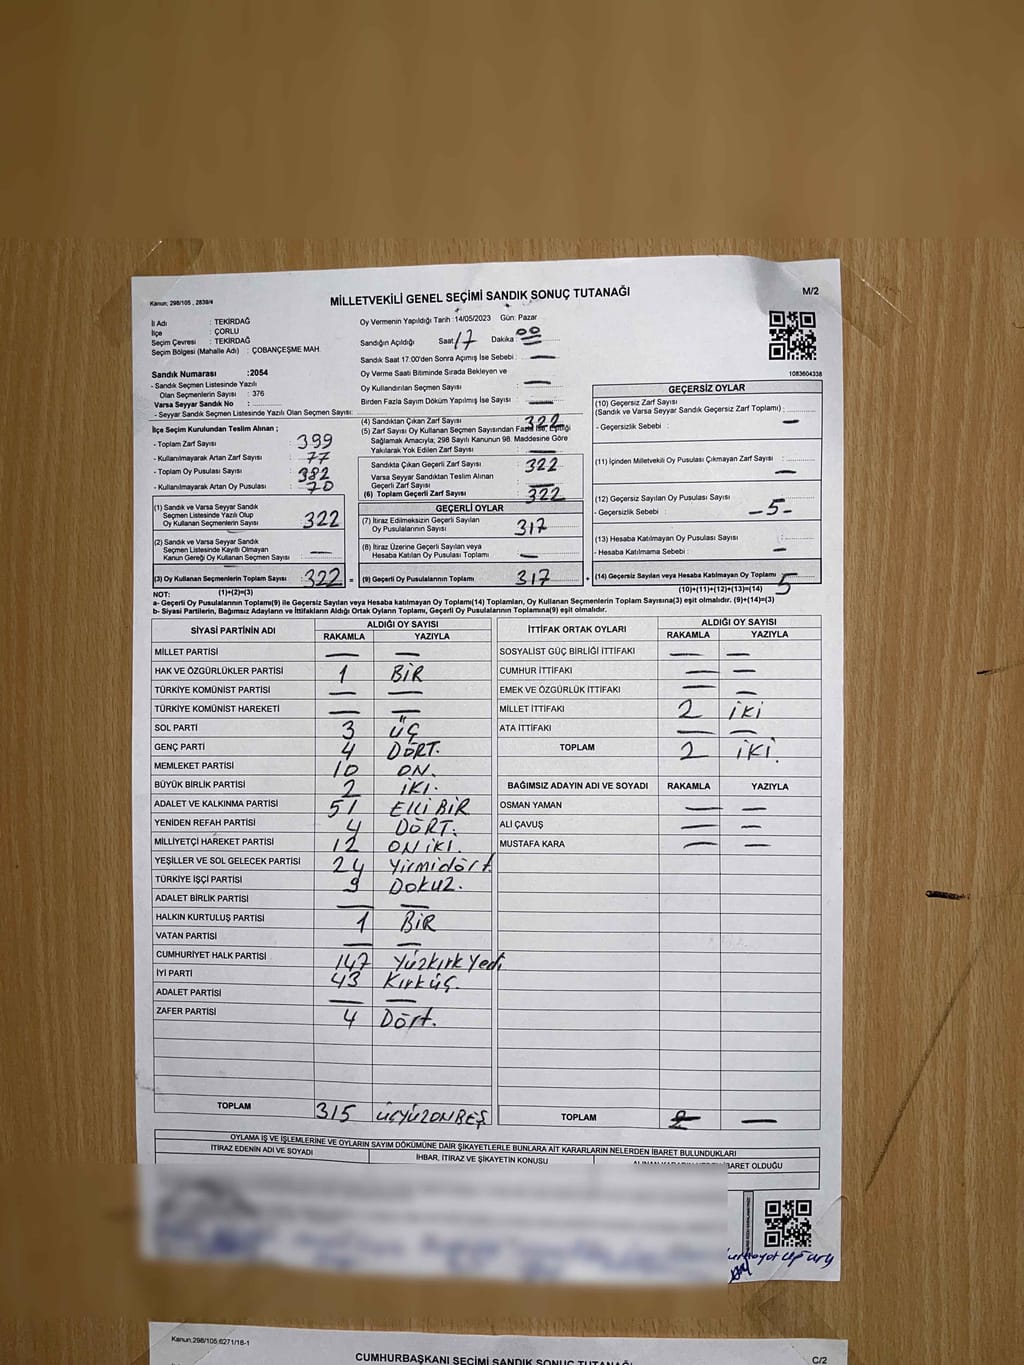 Kanun; 298/105 , 2839/4
MİLLETVEKİLİ GENEL SEÇİMİ SANDIK SONUÇ TUTANAĞI
M/2
İl Adı : TEKİRDAĞ
İlçe : ÇORLU
Seçim Çevresi : TEKİRDAĞ
Seçim Bölgesi (Mahalle Adı) : ÇOBANÇEŞME MAH.
Sandık Numarası :2054
- Sandık Seçmen Listesinde Yazılı
Olan Seçmenlerin Sayısı : 376
Varsa Seyyar Sandık No :
- Seyyar Sandık Seçmen Listesinde Yazılı Olan Seçmen Sayısı:
Oy Vermenin Yapıldığı Tarih :14/05/2023 Gün: Pazar
Sandığın Açıldığı Saat 17 Dakika 00
Sandık Saat 17:00'den Sonra Açımış İse Sebebi : —
Oy Verme Saati Bitiminde Sırada Bekleyen ve
Oy Kullandırılan Seçmen Sayısı : —
Birden Fazla Sayım Döküm Yapılmış İse Sayısı : —
1083604338
İlçe Seçim Kurulundan Teslim Alınan ;
- Toplam Zarf Sayısı : 399
- Kullanılmayarak Artan Zarf Sayısı : 77
- Toplam Oy Pusulası Sayısı : 382
- Kullanılmayarak Artan Oy Pusulası : 70
(1) Sandık ve Varsa Seyyar Sandık
Seçmen Listesinde Yazılı Olup
Oy Kullanan Seçmenlerin Sayısı : 322
(2) Sandık ve Varsa Seyyar Sandık
Seçmen Listesinde Kayıtlı Olmayan
Kanun Gereği Oy Kullanan Seçmen Sayısı : —
(3) Oy Kullanan Seçmenlerin Toplam Sayısı : 322 =
(1)+(2)=(3)
(4) Sandıktan Çıkan Zarf Sayısı : 322
(5) Zarf Sayısı Oy Kullanan Seçmen Sayısından Fazla İse, Eşitliği
Sağlamak Amacıyla; 298 Sayılı Kanunun 98. Maddesine Göre
Yakılarak Yok Edilen Zarf Sayısı : —
Sandıkta Çıkan Geçerli Zarf Sayısı : 322
Varsa Seyyar Sandıktan Teslim Alınan
Geçerli Zarf Sayısı : —
(6) Toplam Geçerli Zarf Sayısı : 322
GEÇERLİ OYLAR
(7) İtiraz Edilmeksizin Geçerli Sayılan
Oy Pusulalarının Sayısı : 317
(8) İtiraz Üzerine Geçerli Sayılan veya
Hesaba Katılan Oy Pusulası Toplamı : —
(9) Geçerli Oy Pusulalarının Toplamı : 317 +
GEÇERSİZ OYLAR
(10) Geçersiz Zarf Sayısı
(Sandık ve Varsa Seyyar Sandık Geçersiz Zarf Toplamı) :
- Geçersizlik Sebebi : —
(11) İçinden Milletvekili Oy Pusulası Çıkmayan Zarf Sayısı : —
(12) Geçersiz Sayılan Oy Pusulası Sayısı :
- Geçersizlik Sebebi : -5-
(13) Hesaba Katılmayan Oy Pusulası Sayısı :
- Hesaba Katılmama Sebebi : —
(14) Geçersiz Sayılan veya Hesaba Katılmayan Oy Toplamı : 5
(10)+(11)+(12)+(13)=(14)
NOT:
a- Geçerli Oy Pusulalarının Toplamı(9) ile Geçersiz Sayılan veya Hesaba katılmayan Oy Toplamı(14) Toplamları, Oy Kullanan Seçmenlerin Toplam Sayısına(3) eşit olmalıdır. (9)+(14)=(3)
b- Siyasi Partilerin, Bağımsız Adayların ve İttifakların Aldığı Ortak Oyların Toplamı, Geçerli Oy Pusulalarının Toplamına(9) eşit olmalıdır.
SİYASİ PARTİNİN ADI ALDIĞI OY SAYISI
RAKAMLA YAZIYLA
MİLLET PARTİSİ — —
HAK VE ÖZGÜRLÜKLER PARTİSİ 1 BİR
TÜRKİYE KOMÜNİST PARTİSİ — —
TÜRKİYE KOMÜNİST HAREKETİ — —
SOL PARTİ 3 ÜÇ
GENÇ PARTİ 4 DÖRT.
MEMLEKET PARTİSİ 10 ON.
BÜYÜK BİRLİK PARTİSİ 2 İKİ.
ADALET VE KALKINMA PARTİSİ 51 ELLİ BİR
YENİDEN REFAH PARTİSİ 4 DÖRT.
MİLLİYETÇİ HAREKET PARTİSİ 12 ON İKİ.
YEŞİLLER VE SOL GELECEK PARTİSİ 24 Yirmidört.
TÜRKİYE İŞÇİ PARTİSİ 9 Dokuz.
ADALET BİRLİK PARTİSİ — —
HALKIN KURTULUŞ PARTİSİ 1 BİR
VATAN PARTİSİ — —
CUMHURİYET HALK PARTİSİ 147 Yüzkırk Yedi
İYİ PARTİ 43 Kırküç.
ADALET PARTİSİ — —
ZAFER PARTİSİ 4 Dört.
TOPLAM 315 ÜÇYÜZONBEŞ
İTTİFAK ORTAK OYLARI ALDIĞI OY SAYISI
RAKAMLA YAZIYLA
SOSYALİST GÜÇ BİRLİĞİ İTTİFAKI — —
CUMHUR İTTİFAKI — —
EMEK VE ÖZGÜRLÜK İTTİFAKI — —
MİLLET İTTİFAKI 2 İKİ
ATA İTTİFAKI — —
TOPLAM 2 İKİ.
BAĞIMSIZ ADAYIN ADI VE SOYADI RAKAMLA YAZIYLA
OSMAN YAMAN — —
ALİ ÇAVUŞ — —
MUSTAFA KARA — —
TOPLAM — —
OYLAMA İŞ VE İŞLEMLERİNE VE OYLARIN SAYIM DÖKÜMÜNE DAİR ŞİKAYETLERLE BUNLARA AİT KARARLARIN NELERDEN İBARET BULUNDUKLARI
İTİRAZ EDENİN ADI VE SOYADI
İHBAR, İTİRAZ VE ŞİKAYETİN KONUSU
İBARET OLDUĞU
Kanun;298/105.6271/18-1
CUMHURBAŞKANI SEÇİMİ SANDIK SONUÇ TUTANAĞI
C/2